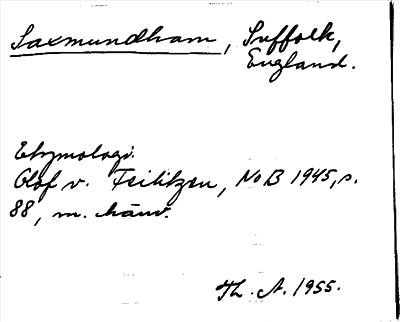 Saxmundham, Suffolk,
England.
Etymologi.
Olof v. Feilitzen, NoB 1945, s.
88, m. hänv.
Th. A. 1955.